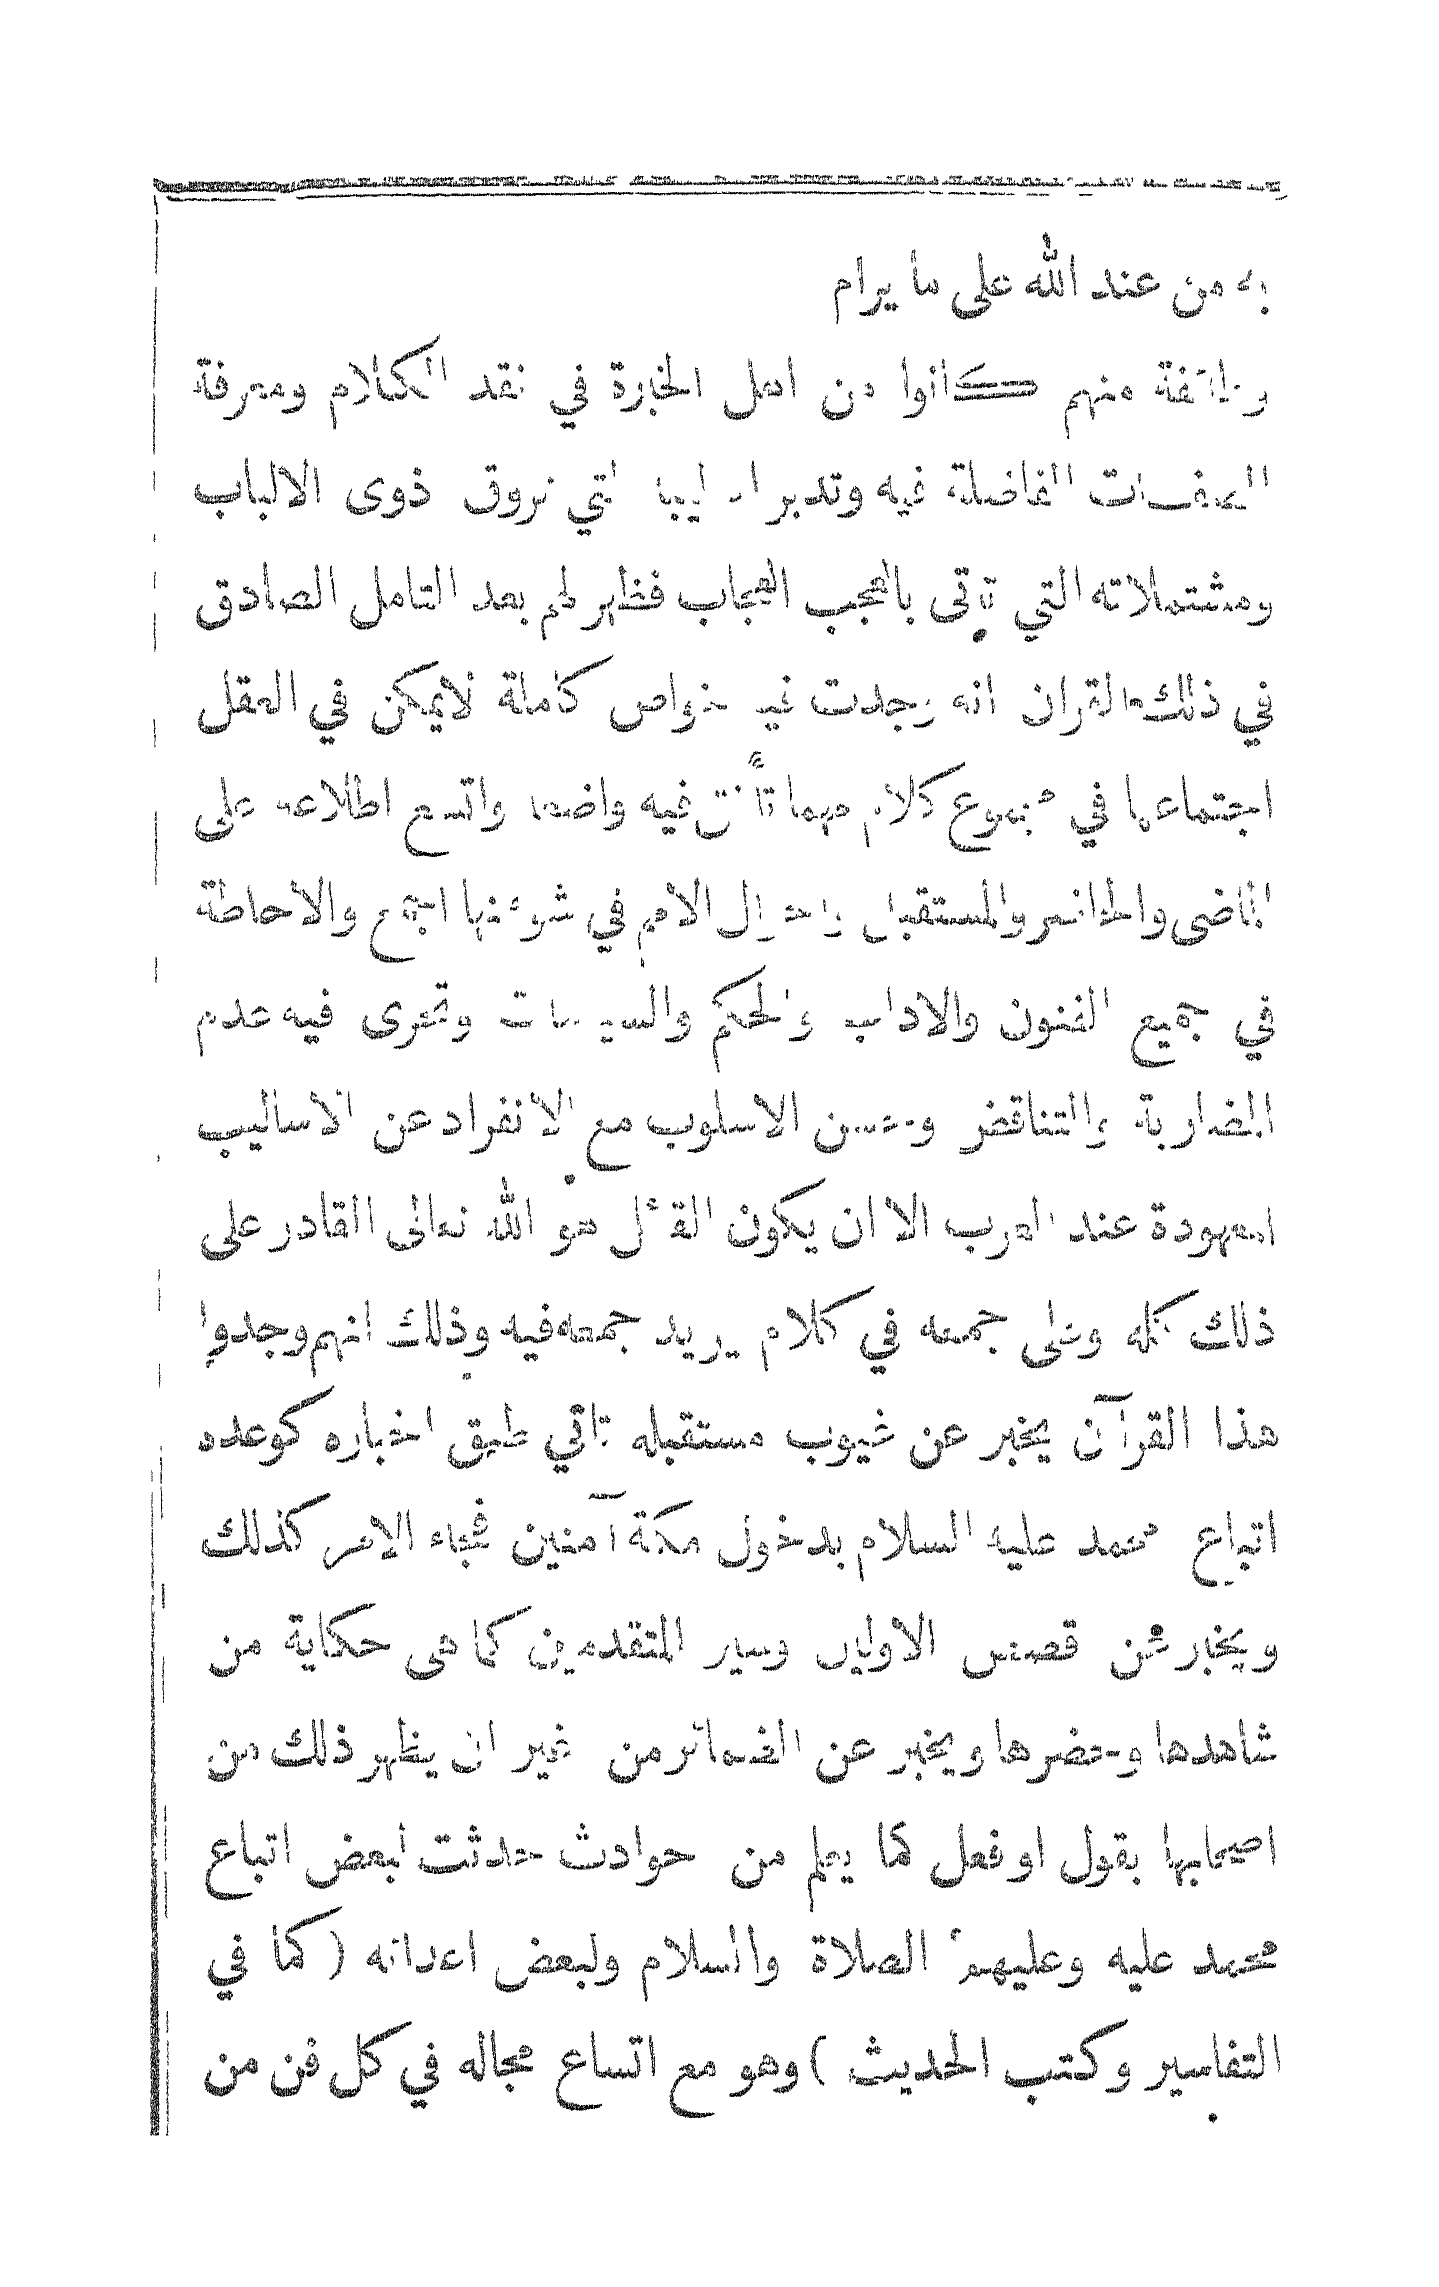 به من عند الله على ما يرام
وطائفة منهم كانوا من اهل الخبرة في نقد الكلام ومعرفة
الصفات الفاضلة فيه وتدبر اساليبه التي تروق ذوى الالباب
ومشتملاته التي تأتى بالعجب العجاب فظهر لهم بعد التامل الصادق
في ذلك القران انه وجدت فيه خواص كاملة لايمكن في العقل
اجتماعها في مجموع كلام مهما تأنق فيه واضعه واتسع اطلاعه على
الماضى والحاضر والمستقبل واحوال الامم في شوءنها اجمع والاحاطة
في جميع الفنون والاداب والحكم والسياسات وتحرى فيه عدم
المضاربة والتناقض وحسن الاسلوب مع الانفراد عن الاساليب
المعهودة عند العرب الا ان يكون القائل هو الله تعالى القادر على
ذلك كله وعلى جمعه في كلام يريد جمعه فيه وذلك انهم وجدوا
هذا القرآن يخبر عن غيوب مستقبله تاتي طبق اخباره كوعده
اتباع محمد عليه السلام بدخول مكة آمنين فجاء الامر كذلك
ويخبر عن قصص الاولين وسير المتقدمين كما هى حكاية من
شاهدها وحضرها ويخبر عن الضمائر من غير ان يظهر ذلك من
اصحابها بقول او فعل كما يعلم من حوادث حدثت لبعض اتباع
محمد عليه وعليهم الصلاة والسلام ولبعض اعدائه ( كما في
التفاسير وكتب الحديث ) وهو مع اتساع مجاله في كل فن من